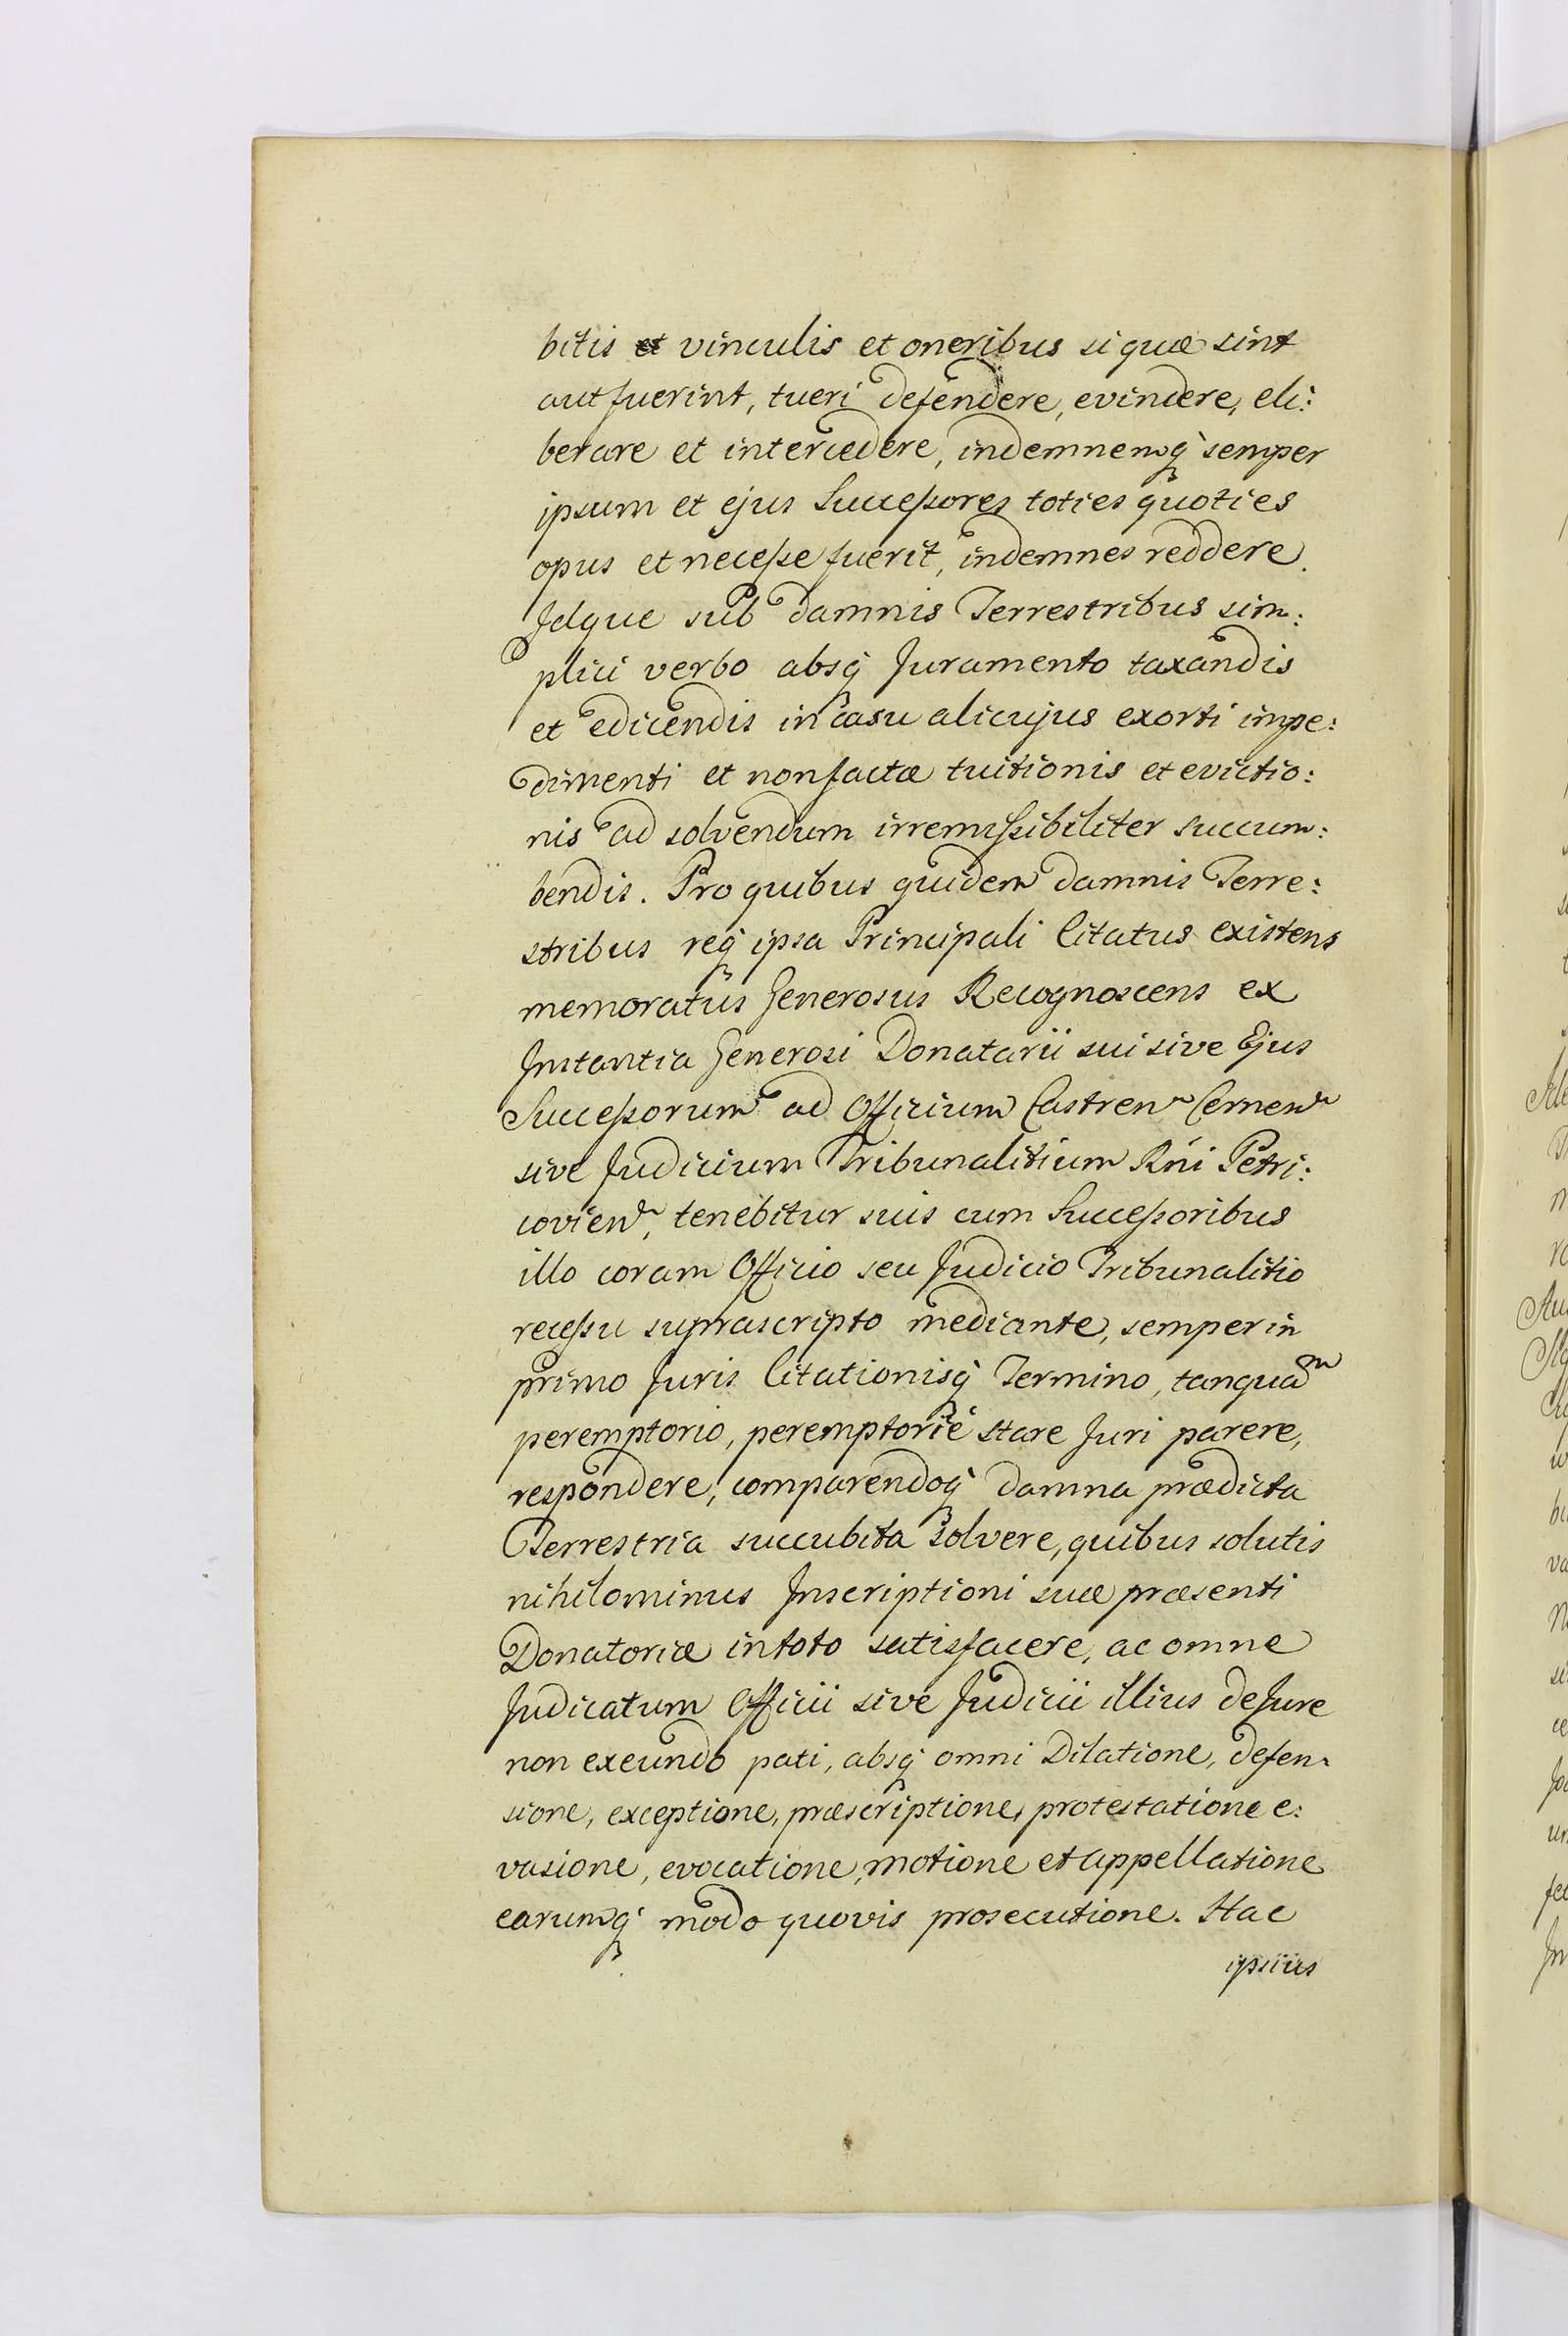 bitis et vinculis et oneribus si quæ sint
aut fuerint, tueri defendere, evincere, eli:
berare et intercedere, indemnemq́ semper
ipsum et ejus Succeſsores toties quoties
opus et neceſse fuerit, indemnes reddere.
Idque sub damnis Terrestribus sim:
plici verbo absq́ Juramento taxandis
et edicendis in casu alicujus exorti impe:
dimenti et non factæ tuitionis et evictio:
nis ad solvendum irremiſsibiliter succum:
bendis. Pro quibus quidem damnis Terre:
stribus req́ ipsa Principali Citatus existens
memoratus Generosus Recognoscens ex
Instantia Generosi Donatarii sui sive Ejus
Succeſsorum ad Officium Castren Cernen
sive Judicium Tribunalitium Rńi Petri:
covien, tenebitur suis cum Succeſsoribus
illo coram Officio seu Judicio Tribunalitio
receſsu suprascripto mediante, semper in
primo Juris Citationisq́ Termino, tanquam
peremptorio, peremptorié stare Juri parere,
respondere, comparendoq́ damna prædicta
Terrestria succubita solvere, quibus solutis
nihilominus Inscriptioni suæ præsenti
Donatoriæ in toto satisfacere, ac omne
Judicatum Officii sive Judicii illius de Jure
non exeundo pati, absq́ omni Dilatione, defen-
sione, exceptione, præscriptione, protestatione e:
vasione, evocatione, motione et appellatione
earumq́ modo quovis prosecutione. Hac
ipsius